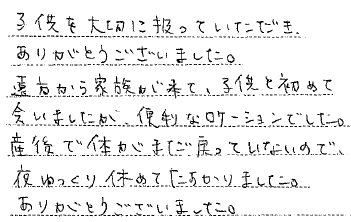 子供を大切に扱っていただき、
ありがとうございました。
遠方から家族が来て、子供と初めて
会いましたが、便利なロケーションでした。
産後で体がまだ戻っていないので、
夜ゆっくり休めてたすかりました。
ありがとうございました。